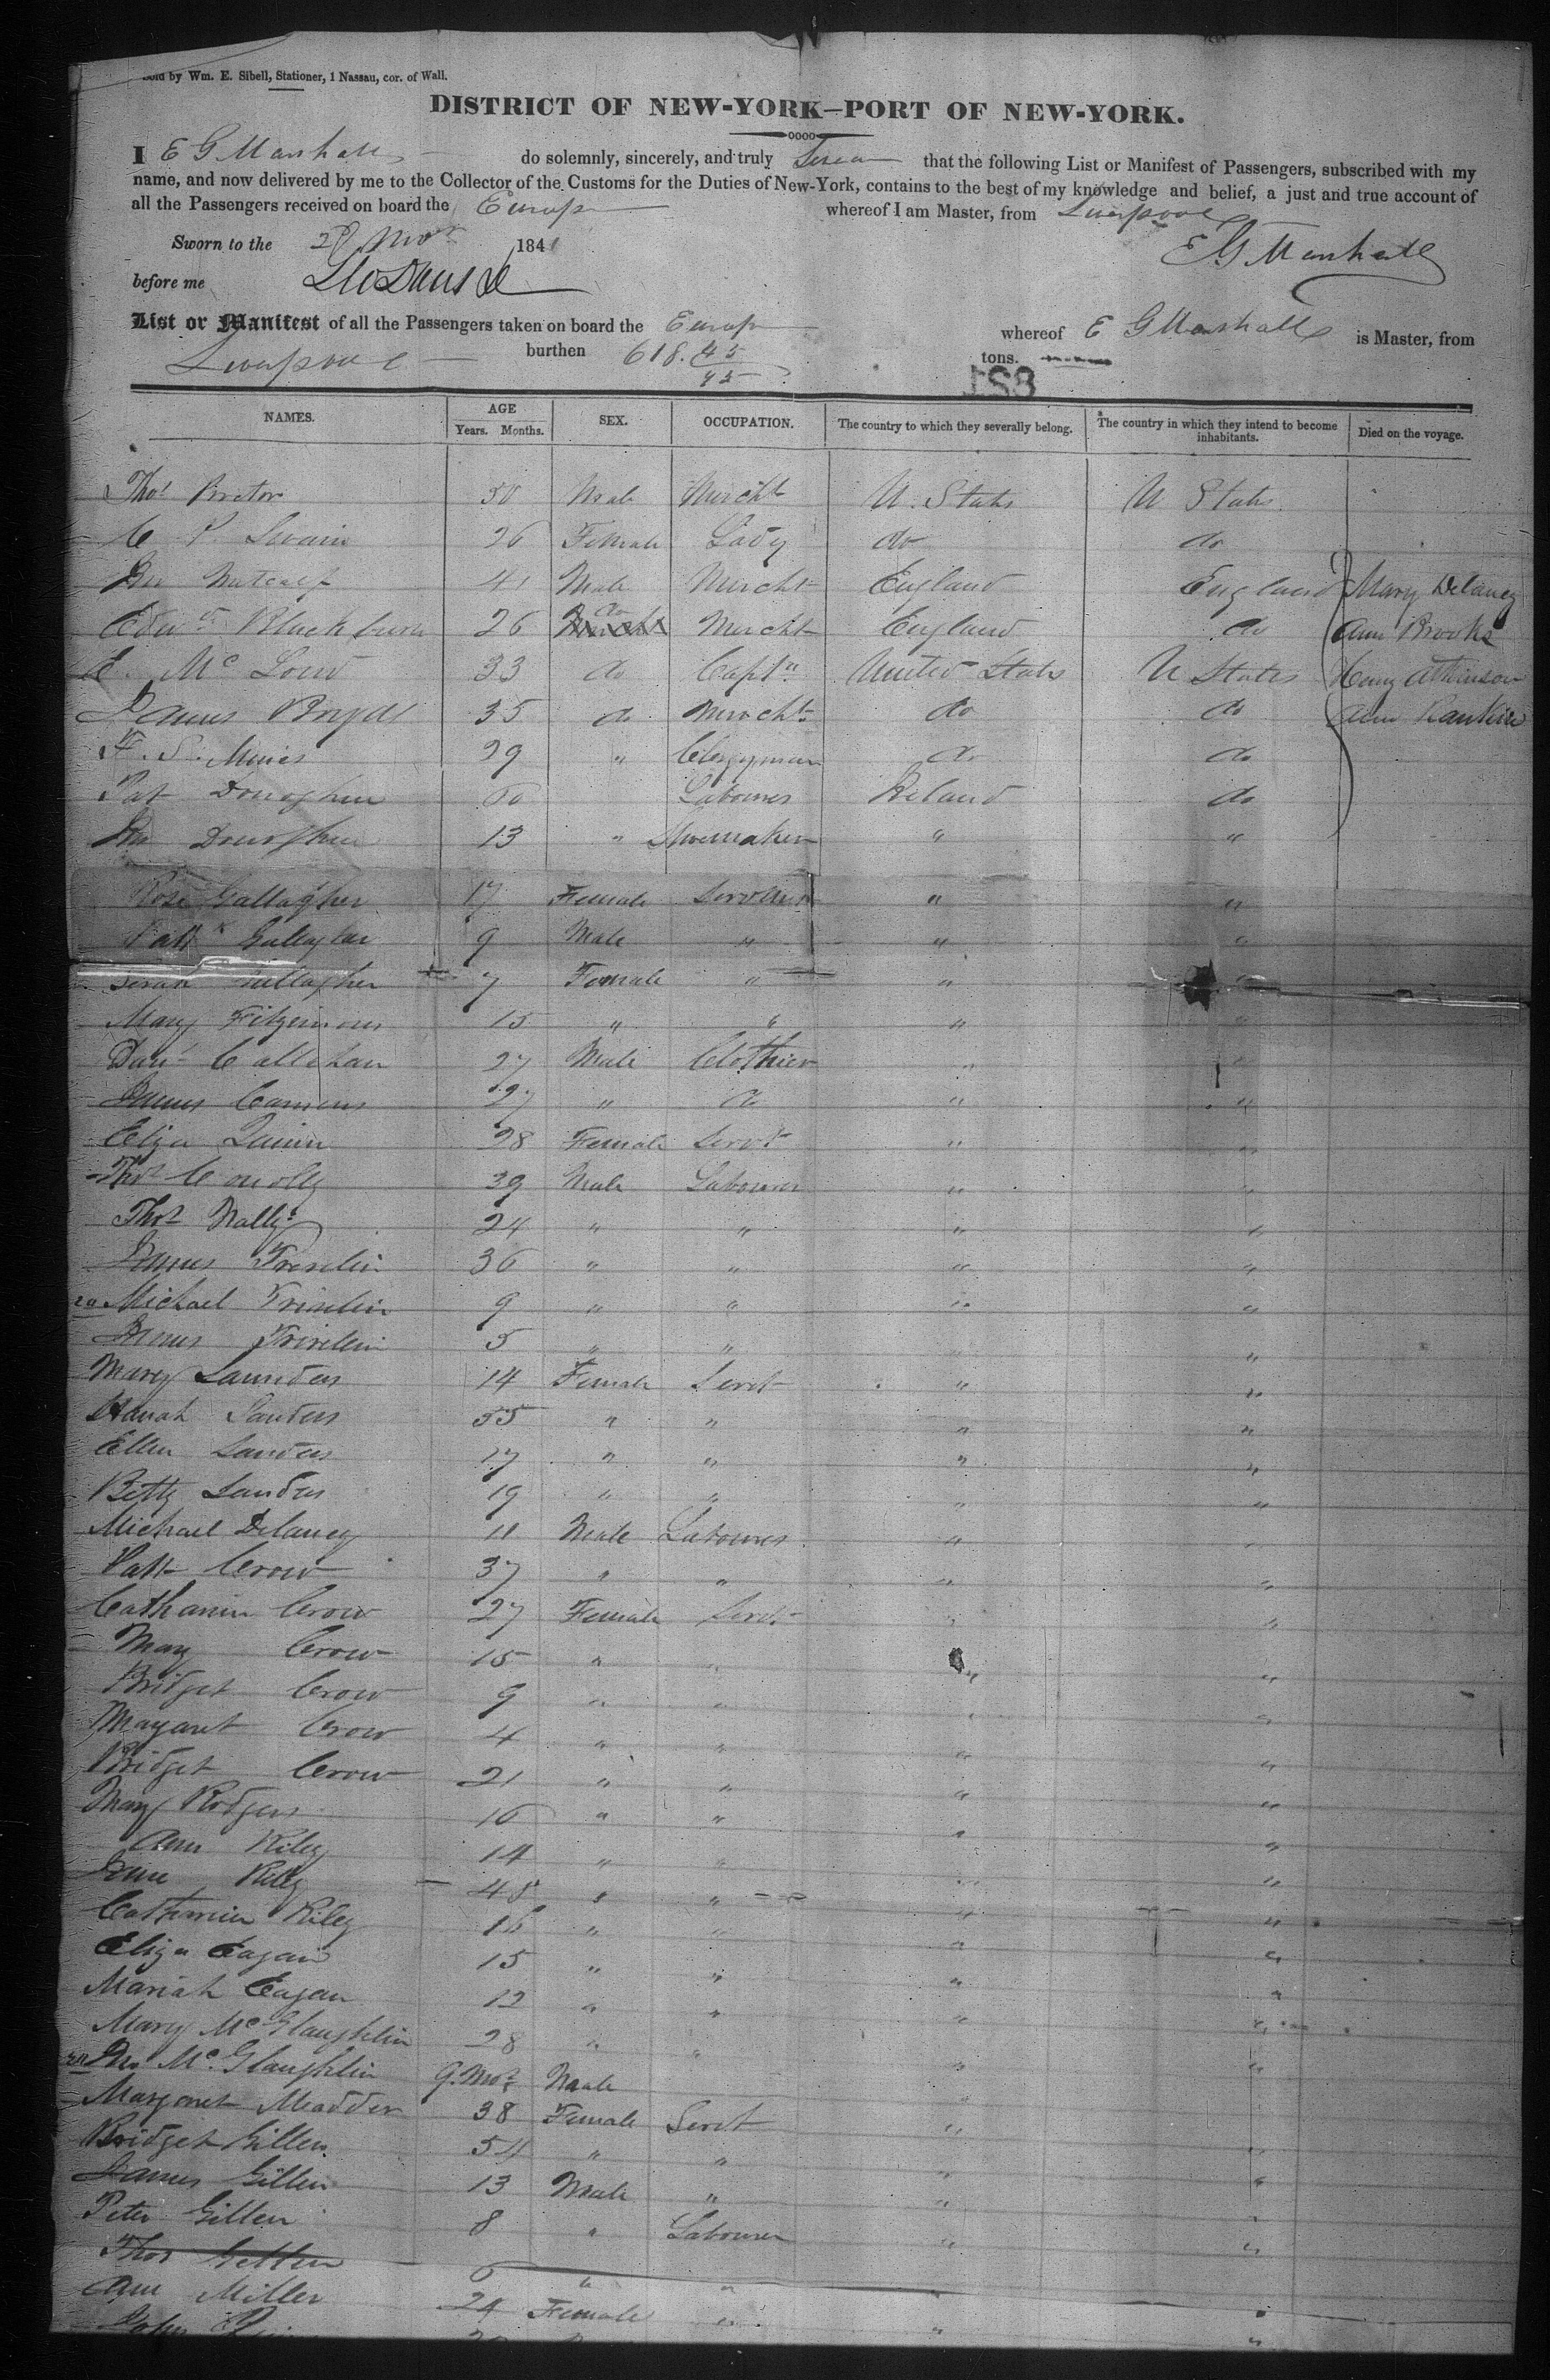 Sold by Wm. E. Sibell, Stationer, 1 Nassau, cor. of Wall.
DISTRICT OF NEW-YORK—PORT OF NEW-YORK.
I E G Marshall do solemnly, sincerely, and truly Swear that the following List or Manifest of Passengers, subscribed with my
name, and now delivered by me to the Collector of the Customs for the Duties of New-York, contains to the best of my knowledge and belief, a just and true account of
all the Passengers received on board the Europe whereof I am Master, from Liverpool
Sworn to the 29 Nov 184 E G Marshall
before me
List or Manifest of all the Passengers taken on board the Europe whereof E G Marshall is Master, from
Liverpool burthen 618. 45/95 tons.
128
NAMES. AGE Years. Months. SEX. OCCUPATION. The country to which they severally belong. The country in which they intend to become inhabitants. Died on the voyage.
Thos 50 Male Mercht U. States U States
C P. Swain 26 Female Lady do do
Jno Metcalf 41 Male Mercht England England Mary Delaney
Edwd Blackburn 26 do Mercht England do Ann Brooks
E. Mc Low 33 do Captn United States U States Henry Atkinson
James Boyd 35 do Mercht do do Ann Rankin
F. S. Mines 29 " Clergyman do do
Pat Donoghue 50 Labourer Ireland do
Jno Donoghue 13 " Shoemaker " "
Rose Gallagher 17 Female Servant " "
Patk Gallagher 9 Male " " "
Sarah Gallagher 7 Female " " "
Mary Fitzsimons 15 " " " "
Danl Callahan 27 Male Clothier " "
James 27 " do " "
Eliza Quinn 28 Female Servt " "
Thos Conolly 39 Male Labourer " "
Thos Nally 24 " " " "
James 36 " " " "
Michael 9 " " " "
James 5 " " " "
Mary Saunders 14 Female Servt " "
Hanah Sanders 55 " " " "
Ellen Sanders 17 " " " "
Betty Sanders 19 " " " "
Michael Delaney 11 Male Labourer " "
Patt Crow 37 " " " "
Catharine Crow 27 Female Servt " "
Mary Crow 15 " " " "
Bridget Crow 9 " " " "
Margaret Crow 4 " " " "
Bridget Crow 21 " " " "
Mary Rodgers 16 " " " "
Ann Riley 14 " " " "
Jane Riley 48 " " " "
Catharine Riley 16 " " " "
Eliza Eagan 15 " " " "
Mariah Eagan 12 " " " "
Mary McGlaughlin 28 " " " "
Jno McGlaughlin 9. Mos Male " "
Margaret Madden 38 Female Servt " "
Bridget Gillen 54 " " " "
James Gillen 13 Male " " "
Peter Gillen 8 " Labourer " "
Thos Gillen 6 " " " "
Ann Miller 24 Female " " "
John